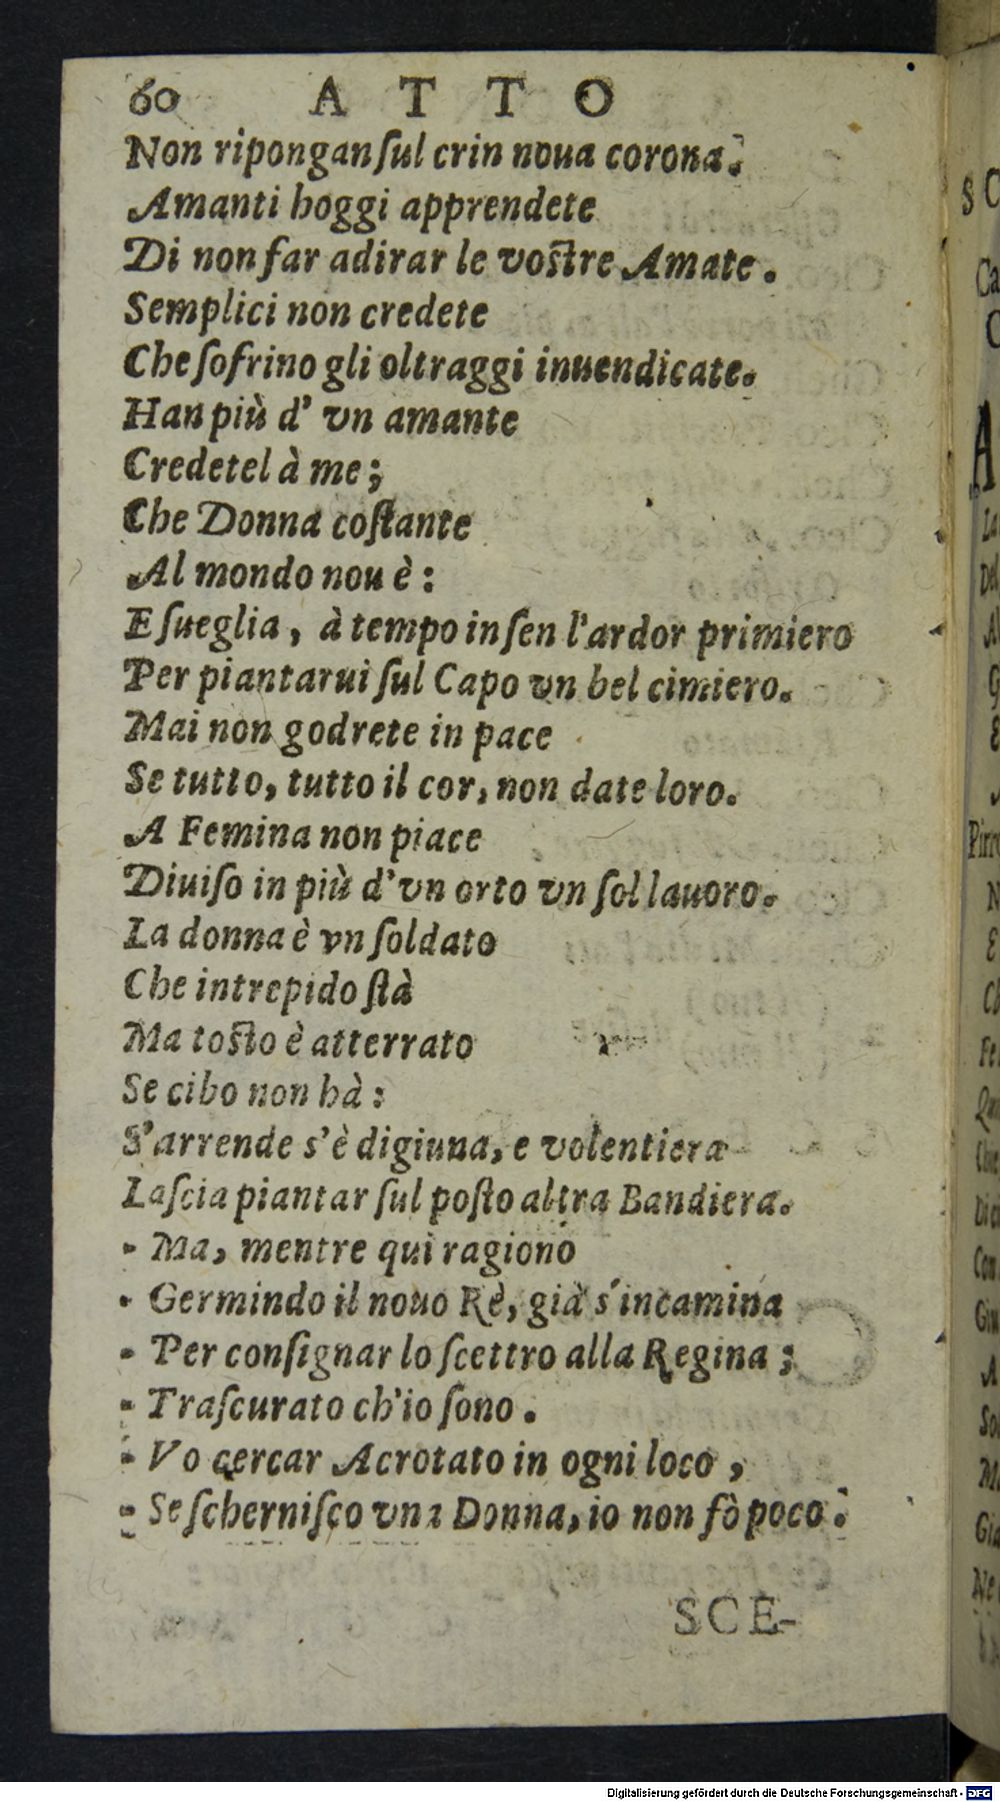 60 ATTO
Non ripongan ſul crin noua corona.
Amanti hoggi apprendete
Di non far adirar le voſtre Amate.
Semplici non credete
Che ſofrino gli oltraggi inuendicate.
Han più d' vn amante
Credetel à me;
Che Donna coſtante
Al mondo nou è:
E ſueglia, à tempo in ſen l'ardor primiero
Per piantarui ſul Capo vn bel cimiero.
Mai non godrete in pace
Se tutto, tutto il cor, non date loro.
A Femina non piace
Diuiſo in più d'vn orto vn ſol lauoro.
La donna è vn ſoldato
Che intrepido ſtà
Ma toſto è atterrato
Se cibo non hà:
S'arrende s'è digiuna, e volentiera
Laſcia piantar ſul poſto altra Bandiera.
Ma, mentre quì ragiono
Germindo il nouo Rè, già s'incamina
Per conſignar lo ſcettro alla Regina;
Traſcurato ch'io ſono.
Vo cercar Acrotato in ogni loco,
Se ſcherniſco vna Donna, io non fò poco.
SCE-
Digitalisierung gefördert durch die Deutsche Forschungsgemeinschaft - DFG